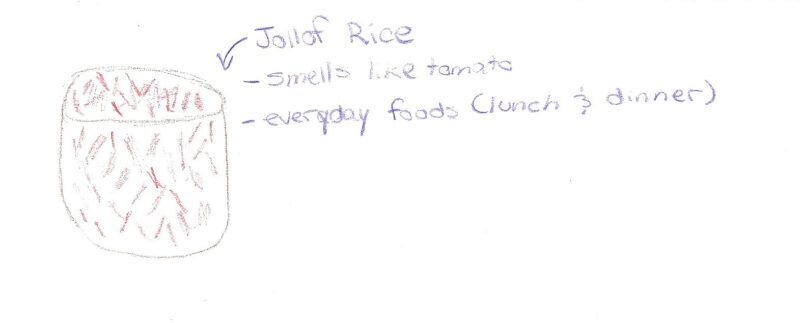 Jollof Rice
- smells like tomato
- everyday foods (lunch & dinner)